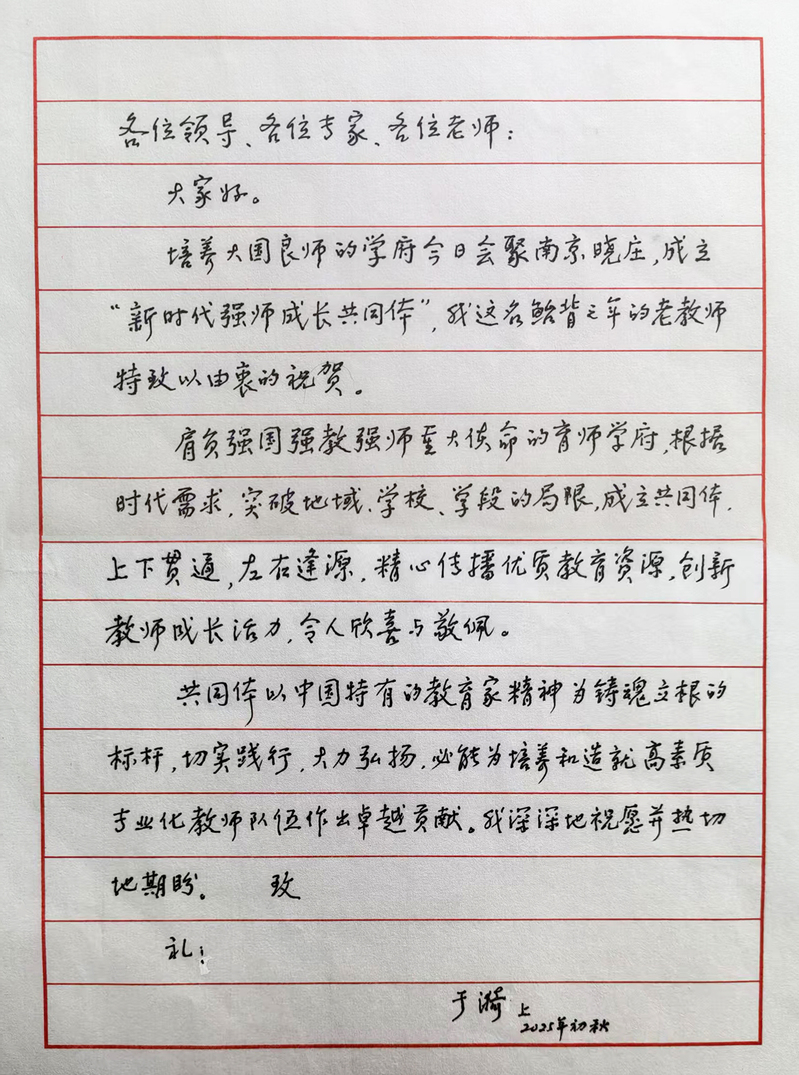 各位领导、各位专家、各位老师：
大家好。
培养大国良师的学府今日会聚南京晓庄，成立
“新时代强师成长共同体”，我这名鲐背之年的老教师
特致以由衷的祝贺。
肩负强国强教强师重大使命的育师学府，根据
时代需求，突破地域、学校、学段的局限，成立共同体，
上下贯通，左右逢源，精心传播优质教育资源，创新
教师成长活力，令人欣喜与敬佩。
共同体以中国特有的教育家精神为铸魂立根的
标杆，切实践行，大力弘扬，必能为培养和造就高素质
专业化教师队伍作出卓越贡献。我深深地祝愿并热切
地期盼。 致
礼！
于漪 上
2025年初秋